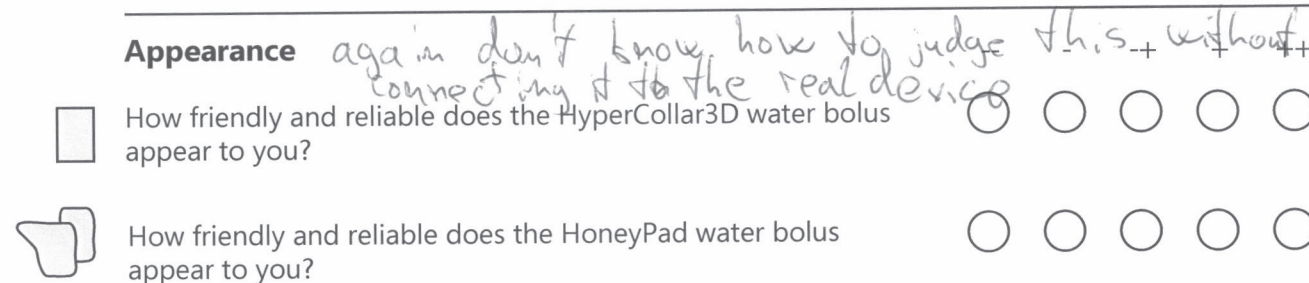 Appearance again don't know how to judge this without
connecting it to the real device
- + + ++
How friendly and reliable does the HyperCollar3D water bolus
appear to you?
How friendly and reliable does the HoneyPad water bolus
appear to you?